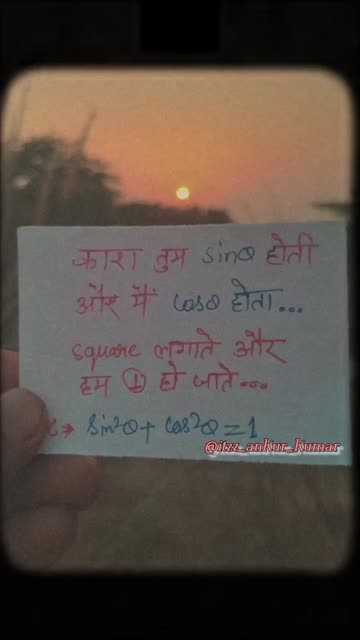 काश तुम sinθ होती
और मैं cosθ होता...
square लगाते और
हम ① हो जाते...
⇒ sin²θ + cos²θ = 1
@itzz_ankur_kumar